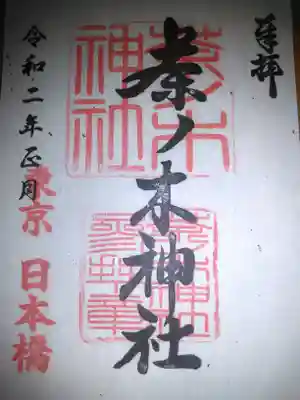 奉拝
茶ノ木神社
令和二年正月
東京
日本橋
茶ノ木
神社